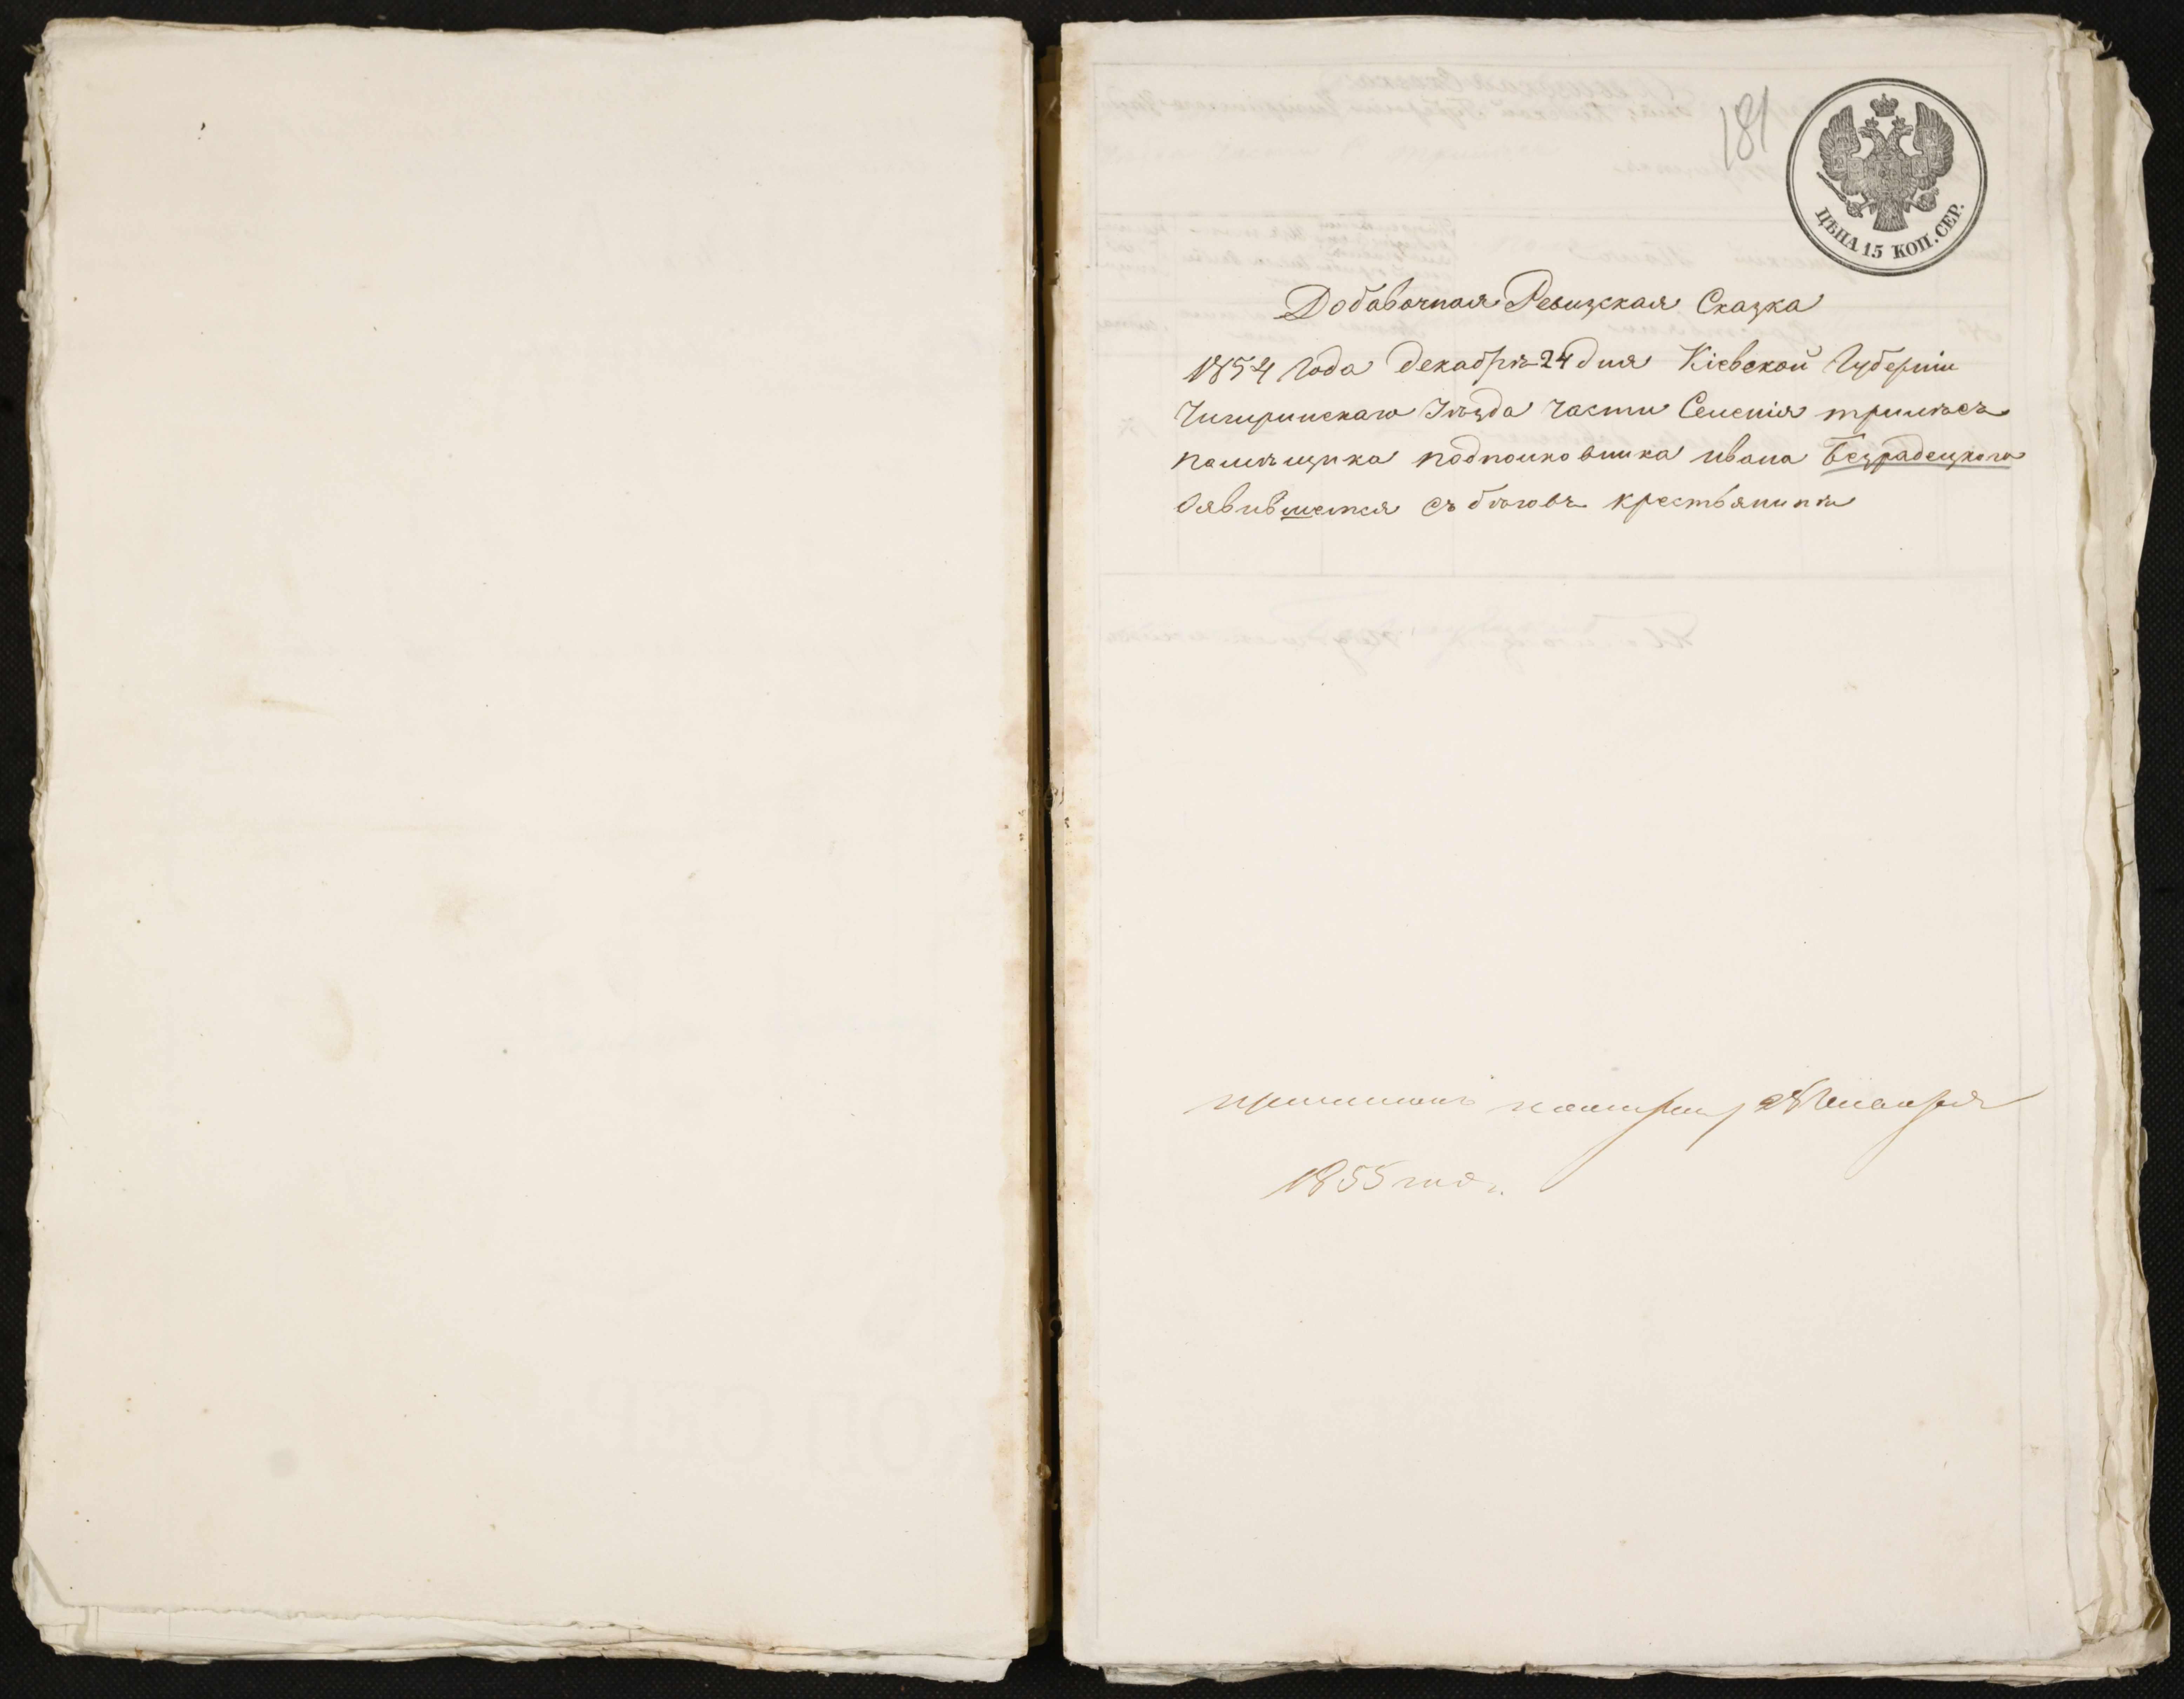 181
ЦѢНА 15 КОП. СЕР.
Добавочная Ревизская Сказка
1854 года декабря 24 дня Кіевской Губерніи
Чигиринскаго Уѣзда части Селенія трилѣсъ
памѣщика подполковника ивана Безрадецкого
оявившемся съ бѣговъ крестьянинѣ
1855 года.